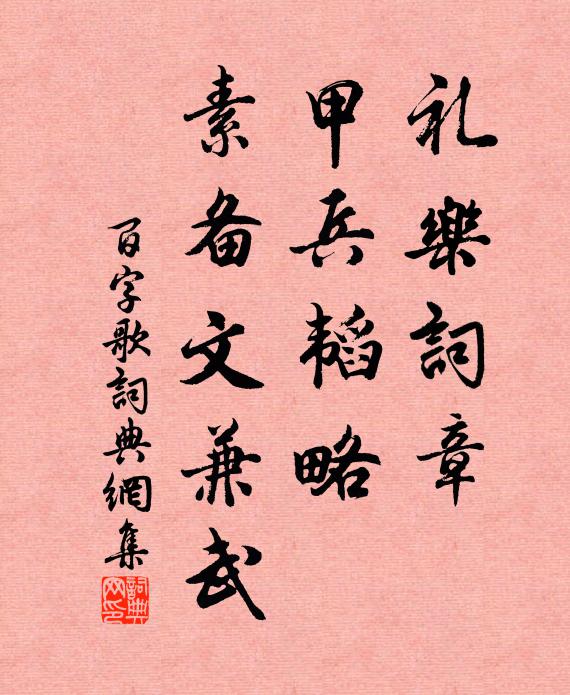 礼樂詞章
甲兵韜略
素备文兼武
百字歌詞典網集
詞典
网印